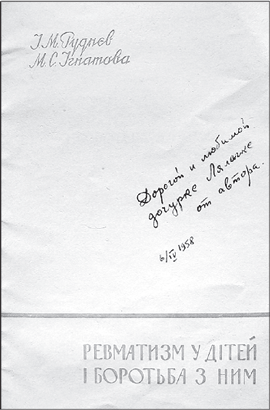 І.М. Руднєв
М.С. Ігнатова
Дорогой и любимой
дочурке Лялечке
от автора.
6/IV 1958
РЕВМАТИЗМ У ДІТЕЙ
І БОРОТЬБА З НИМ